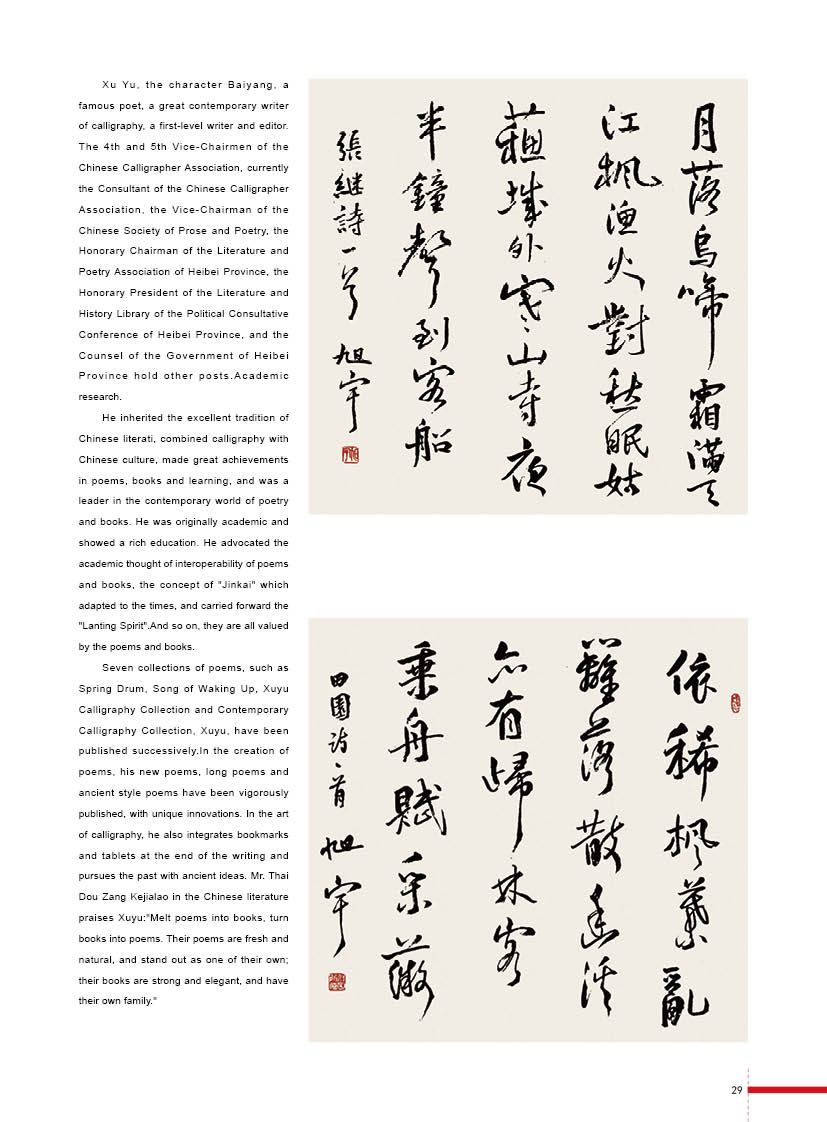 Xu Yu, the character Baiyang, a
famous poet, a great contemporary writer
of calligraphy, a first-level writer and editor.
The 4th and 5th Vice-Chairmen of the
Chinese Calligrapher Association, currently
the Consultant of the Chinese Calligrapher
Association, the Vice-Chairman of the
Chinese Society of Prose and Poetry, the
Honorary Chairman of the Literature and
Poetry Association of Heibei Province, the
Honorary President of the Literature and
History Library of the Political Consultative
Conference of Heibei Province, and the
Counsel of the Government of Heibei
Province hold other posts.Academic
research.
He inherited the excellent tradition of
Chinese literati, combined calligraphy with
Chinese culture, made great achievements
in poems, books and learning, and was a
leader in the contemporary world of poetry
and books. He was originally academic and
showed a rich education. He advocated the
academic thought of interoperability of poems
and books, the concept of "Jinkai" which
adapted to the times, and carried forward the
"Lanting Spirit".And so on, they are all valued
by the poems and books.
Seven collections of poems, such as
Spring Drum, Song of Waking Up, Xuyu
Calligraphy Collection and Contemporary
Calligraphy Collection, Xuyu, have been
published successively.In the creation of
poems, his new poems, long poems and
ancient style poems have been vigorously
published, with unique innovations. In the art
of calligraphy, he also integrates bookmarks
and tablets at the end of the writing and
pursues the past with ancient ideas. Mr. Thai
Dou Zang Kejialao in the Chinese literature
praises Xuyu:"Melt poems into books, turn
books into poems. Their poems are fresh and
natural, and stand out as one of their own;
their books are strong and elegant, and have
their own family."
月落烏啼霜滿天
江楓漁火對愁眠姑
蘇城外寒山寺夜
半鐘聲到客船
張继詩一首 旭宇
依稀楓葉亂
籬落散幽溪
亦有歸林客
乘舟賦采薇
田園詩一首 旭宇
29